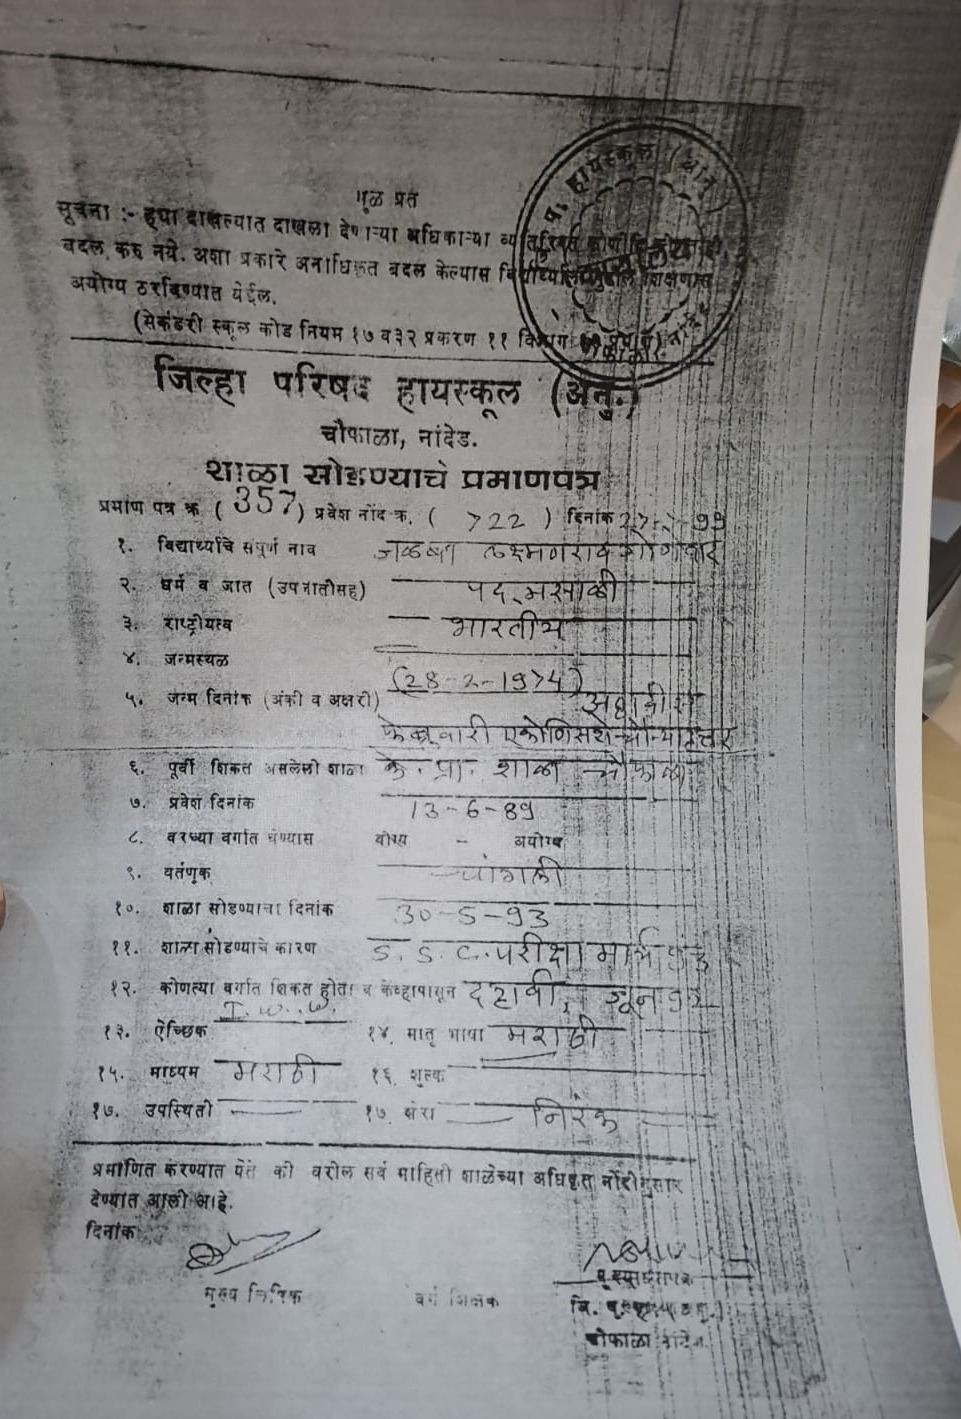 मूळ प्रत
सूचना :- ह्या दाखल्यात दाखला देणाऱ्या अधिकाऱ्या
बदल करु नये. अशा प्रकारे अनाधिकृत बदल केल्यास
अयोग्य ठरविण्यात येईल.
(सेकंडरी स्कूल कोड नियम १७ व ३२ प्रकरण ११ विभाग
हायस्कूल
जिल्हा परिषद हायस्कूल (अनु.)
चौफाळा, नांदेड.
शाळा सोडण्याचे प्रमाणपत्र
प्रमाण पत्र क्र ( 357 ) प्रवेश नोंद क्र. ( 722 ) दिनांक
१. विद्यार्थ्याचे संपूर्ण नाव लक्ष्मणराव
२. धर्म व जात (उपजातीसह) पद्मसाळी
३. राष्ट्रीयत्व भारतीय
४. जन्मस्थळ
५. जन्म दिनांक (अंकी व अक्षरी) (28-2-1974) अठ्ठावीस
फेब्रुवारी एकोणिसशे चौऱ्याहत्तर
६. पूर्वी शिकत असलेली शाळा के. प्रा. शाळा चौफाळा
७. प्रवेश दिनांक 13-6-89
८. वरच्या वर्गात घेण्यास योग्य - अयोग्य
९. वर्तणूक चांगली
१०. शाळा सोडण्याचा दिनांक 30-5-93
११. शाळा सोडण्याचे कारण S. S. C. परीक्षा मार्च
१२. कोणत्या वर्गात शिकत होता व केव्हापासून दहावी, जून
१३. ऐच्छिक १४. मातृ भाषा मराठी
१५. माध्यम मराठी १६. शुल्क
१७. उपस्थिती १७. शेरा निरंक
प्रमाणित करण्यात येते की वरील सर्व माहिती शाळेच्या अधिकृत नोंदीनुसार
देण्यात आली आहे.
दिनांक
मुख्य लिपिक वर्ग शिक्षक मुख्याध्यापक
चौफाळा नांदेड.